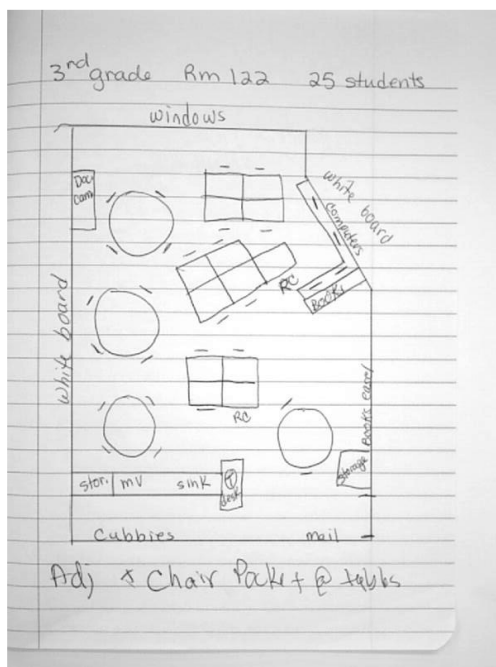 3rd grade Rm 122 25 students
windows
Doc Cam
white board
computers
RC
Books
white board
RC
Books easel
storage
stor. mv sink
T desk
Cubbies mail
Adj * Chair Pocket @ tables